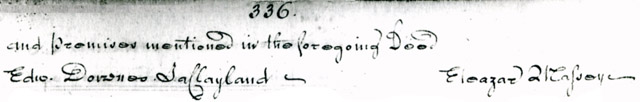 336.
and premises mentioned in the foregoing Deed
Edw. Downes Eleazar Massey